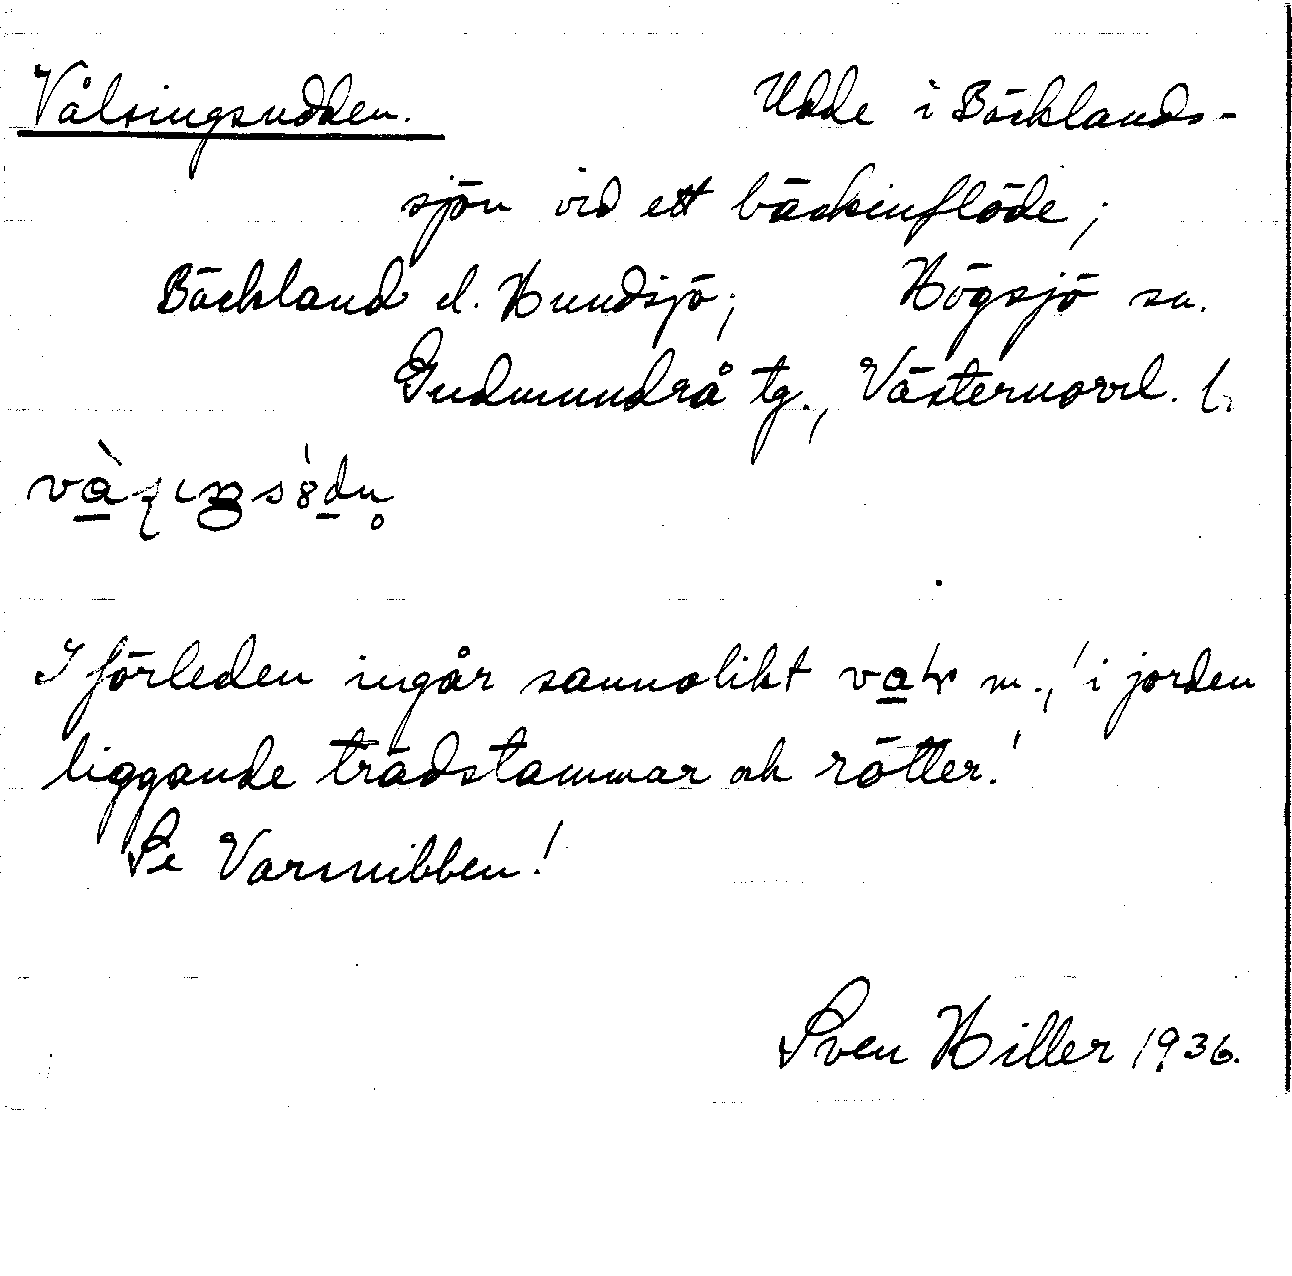 Vålsingsudden. Udde i Böcklands-
sjön vid ett bäckinflöde;
Böckland el. Hundsjö; Högsjö sn.
Gudmundrå tg., Västernorrl. l.
I förleden ingår sannolikt m., 'i jorden
liggande trädstammar och rötter.'
Se Varsnibben!
Sven Hiller 1936.